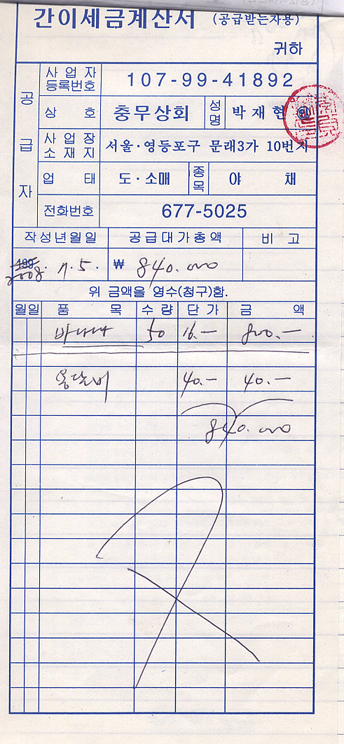 간이세금계산서 (공급받는자용)
귀하
공급자
사업자등록번호 107-99-41892
상호 충무상회 성명 박재현 ㊞
사업장소재지 서울·영등포구 문래3가 10번지
업태 도·소매 종목 야채
전화번호 677-5025
작성년월일 공급대가총액 비고
2008. 7. 5. ₩ 840.000
위 금액을 영수(청구)함.
월일 품목 수량 단가 금액
바나나 50 16.— 800.—
용달비 40.— 40.—
840.000